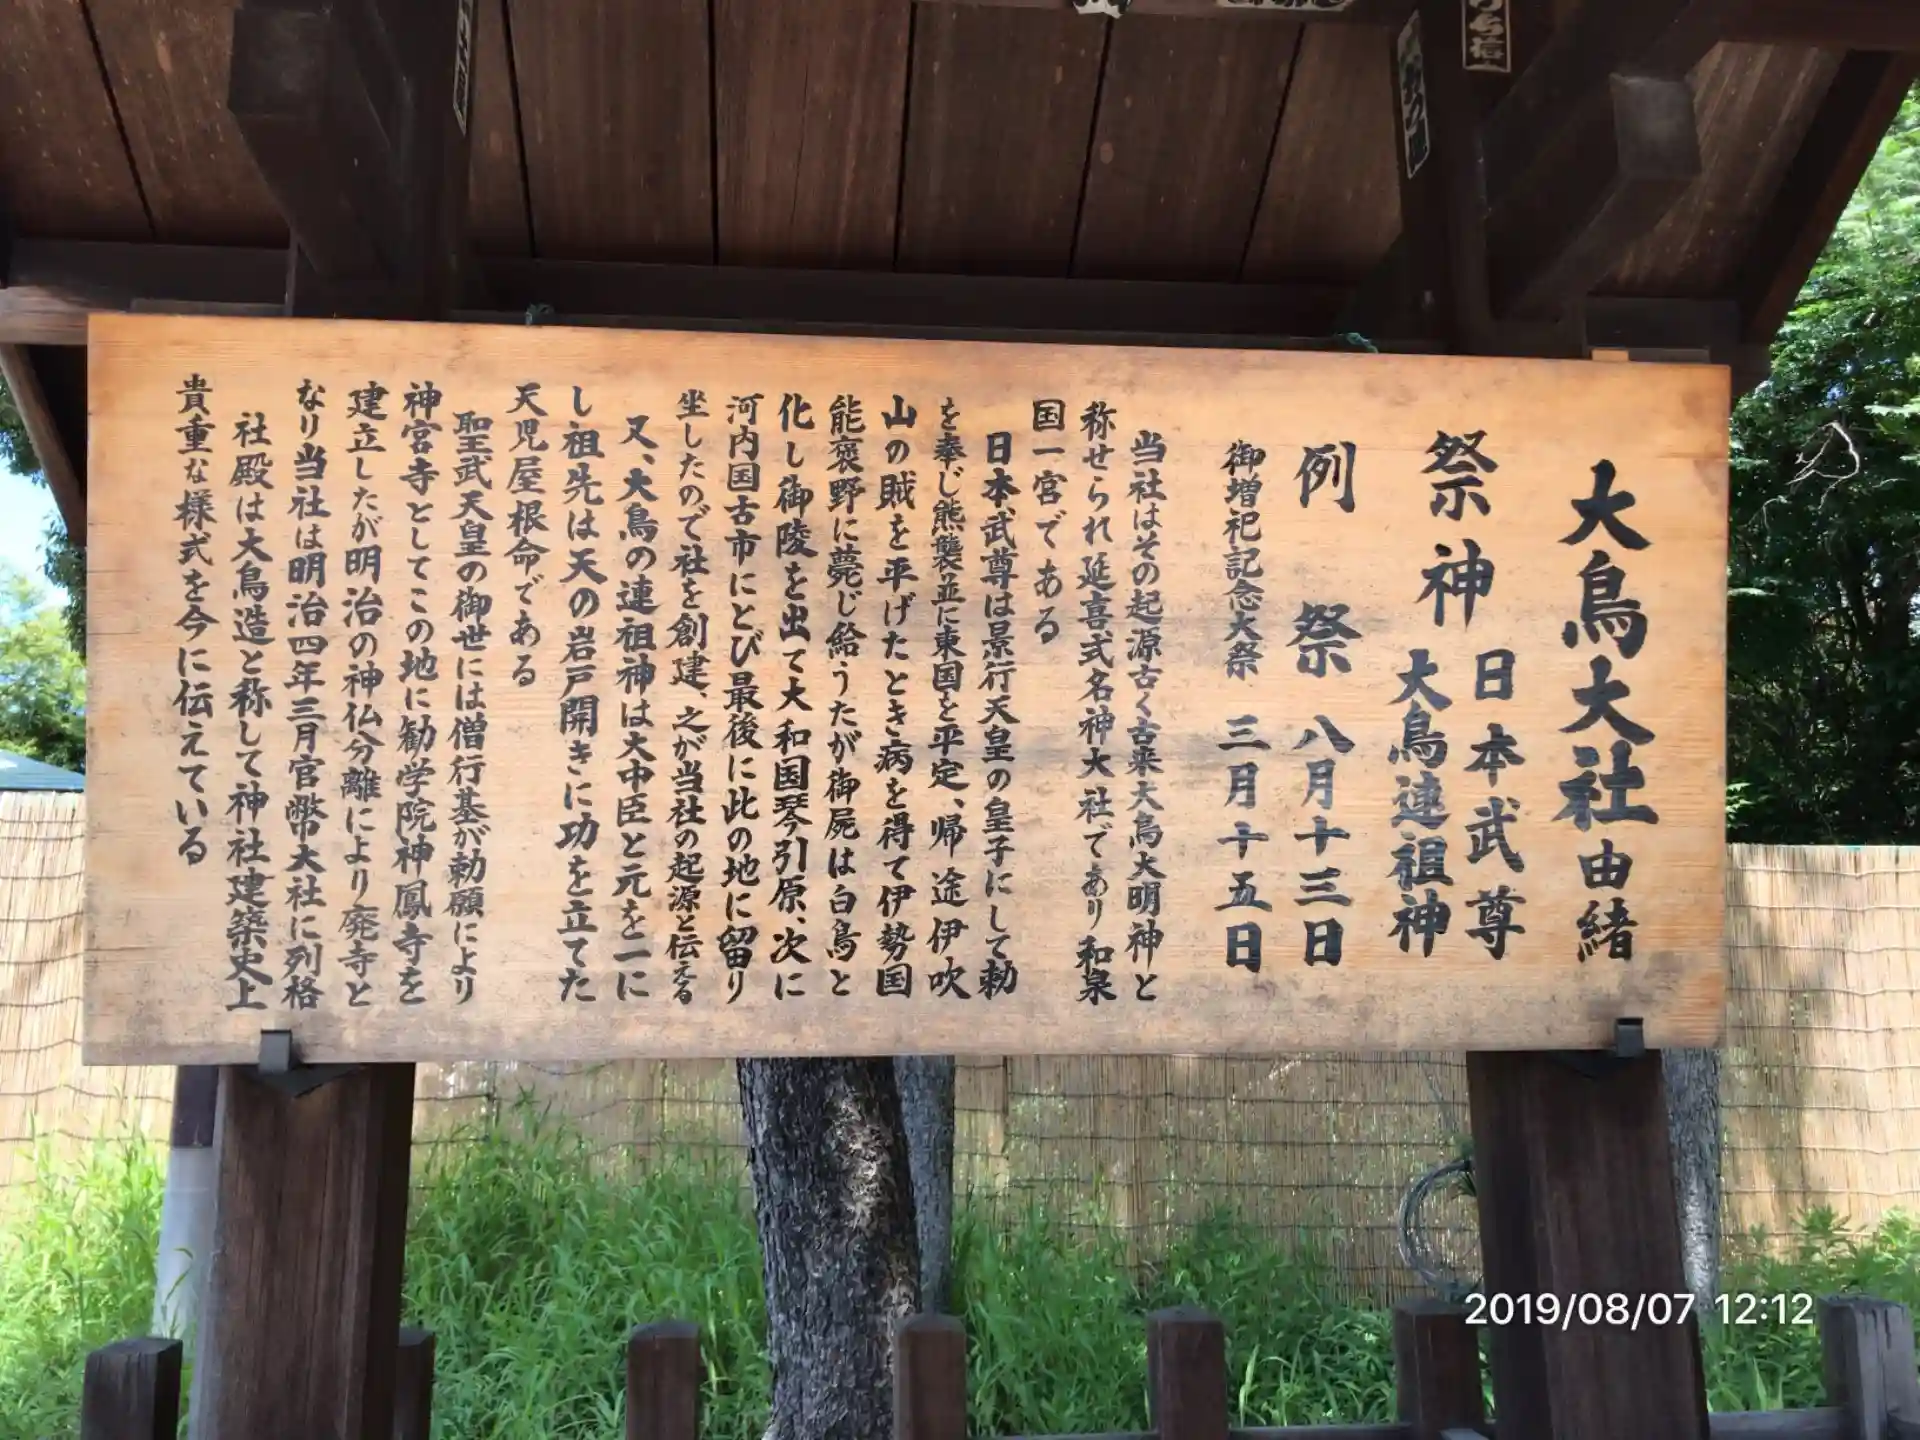 大鳥大社由緒
祭神 日本武尊
大鳥連祖神
例祭 八月十三日
御増祀記念大祭 三月十五日
当社はその起源古く古来大鳥大明神と
称せられ延喜式名神大社であり和泉
国一宮である
日本武尊は景行天皇の皇子にして勅
を奉じ熊襲並に東国を平定、帰途伊吹
山の賊を平げたとき病を得て伊勢国
能褒野に薨じ給うたが御屍は白鳥と
化し御陵を出て大和国琴引原、次に
河内国古市にとび最後に此の地に留り
坐したので社を創建、之が当社の起源と伝える
又、大鳥の連祖神は大中臣と元を一に
し祖先は天の岩戸開きに功を立てた
天児屋根命である
聖武天皇の御世には僧行基が勅願により
神宮寺としてこの地に勧学院神鳳寺を
建立したが明治の神仏分離により廃寺と
なり当社は明治四年三月官幣大社に列格
社殿は大鳥造と称して神社建築史上
貴重な様式を今に伝えている
2019/08/07 12:12